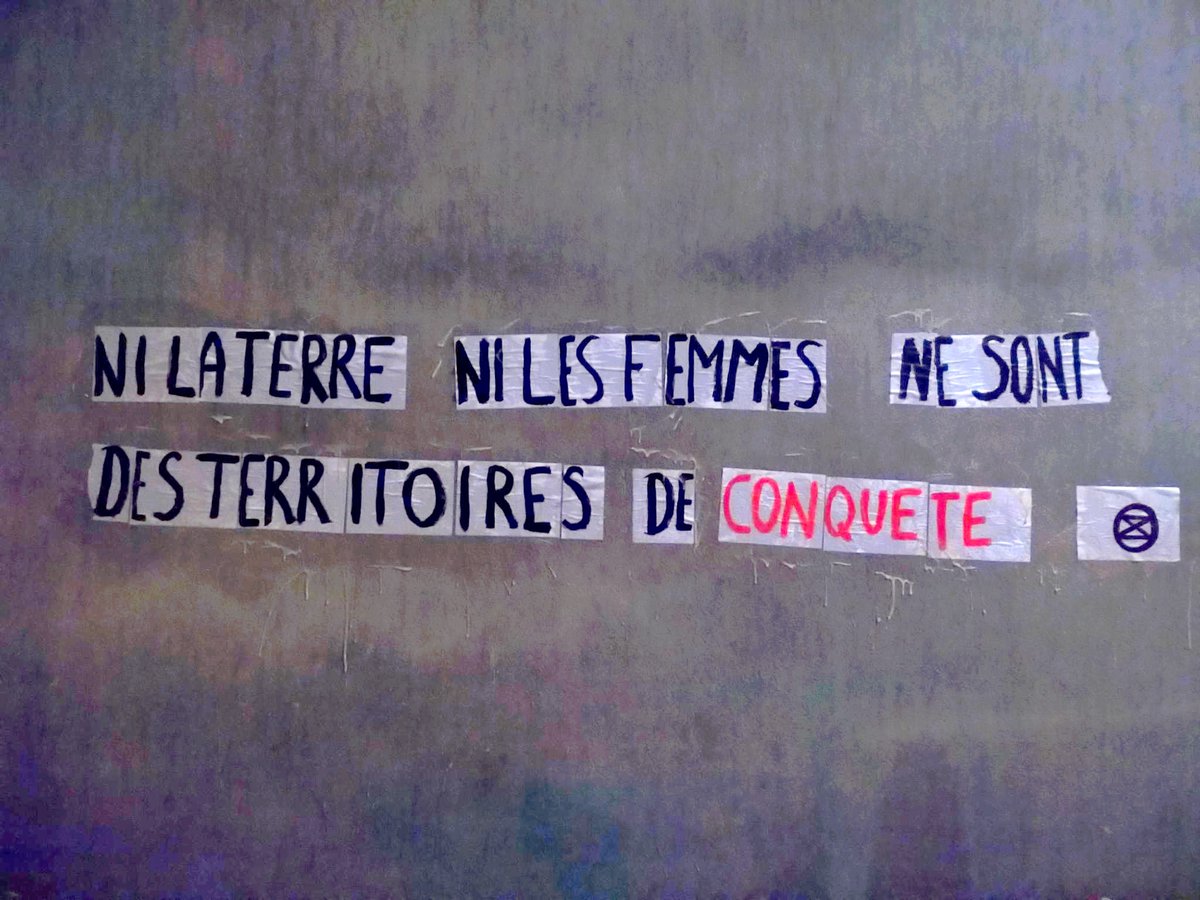 NI LA TERRE NI LES FEMMES NE SONT
DES TERRITOIRES DE CONQUETE